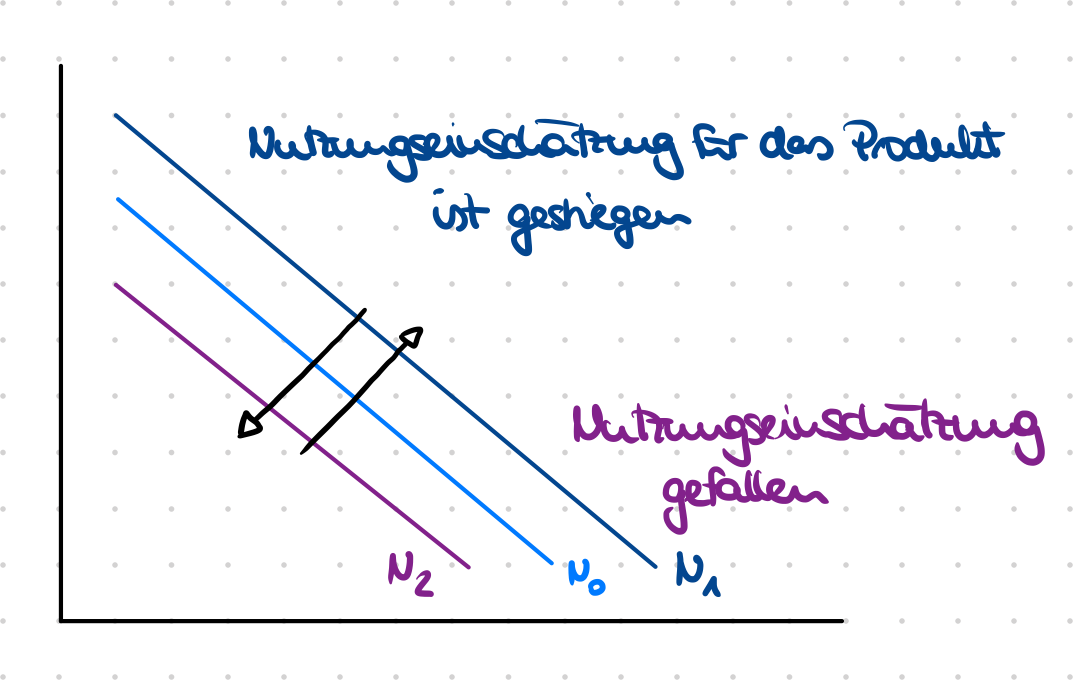 Nutzungseinschätzung für das Produkt
ist gestiegen
Nutzungseinschätzung
gefallen
N2
N0
N1